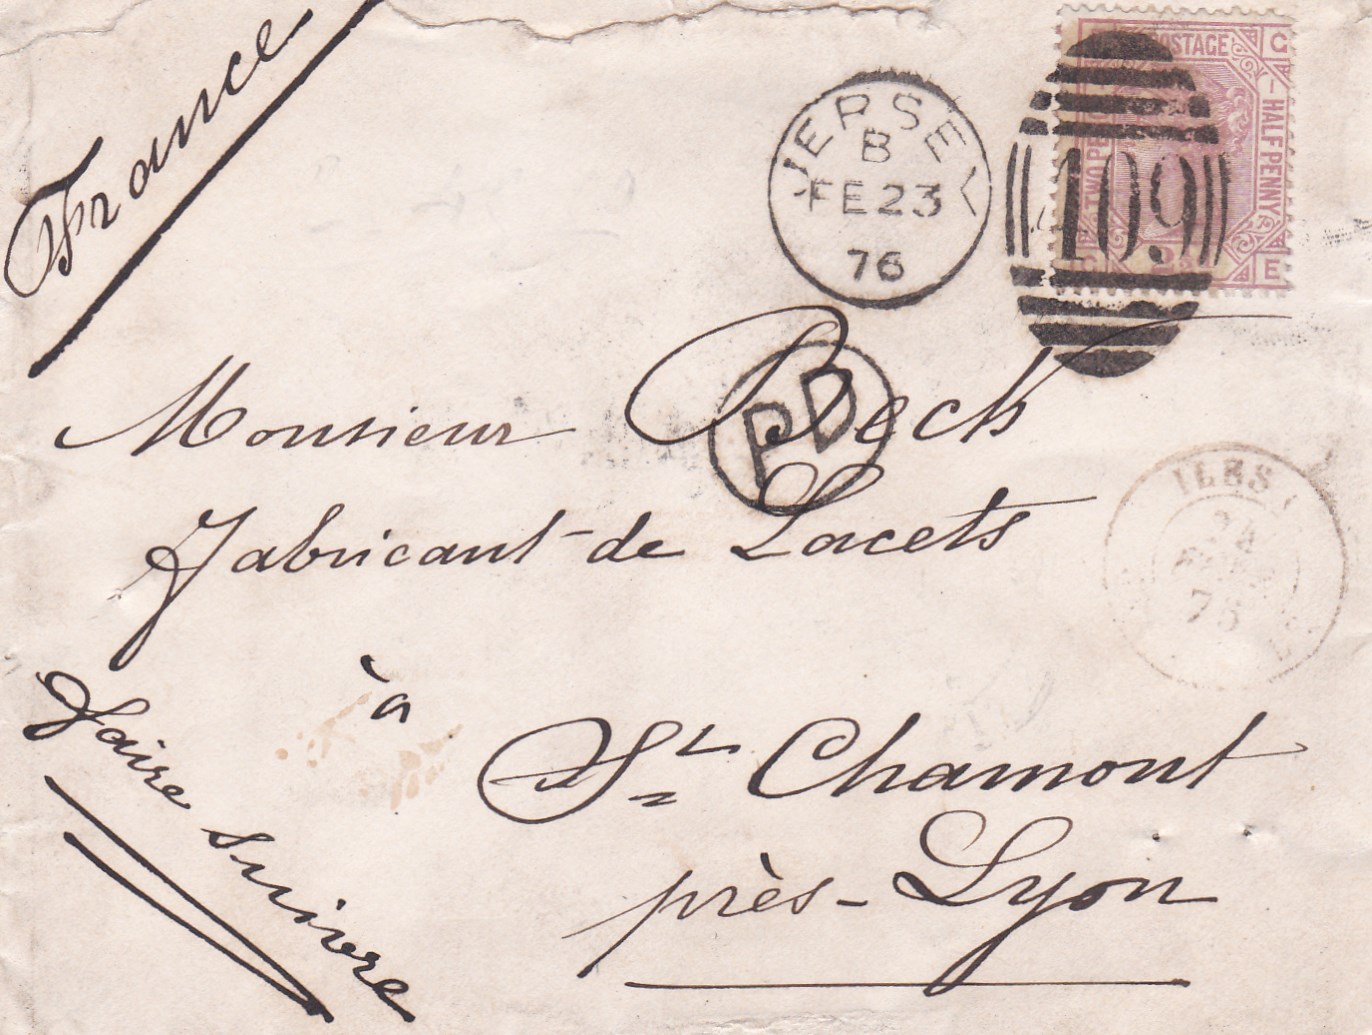 France
JERSEY
B
FE 23
76
409
POSTAGE
HALF PENNY
G
G
E
PD
Monsieur Bech
Fabricant de Lacets
à
St Chamont
près-Lyon
Faire suivre
ILES
24
76